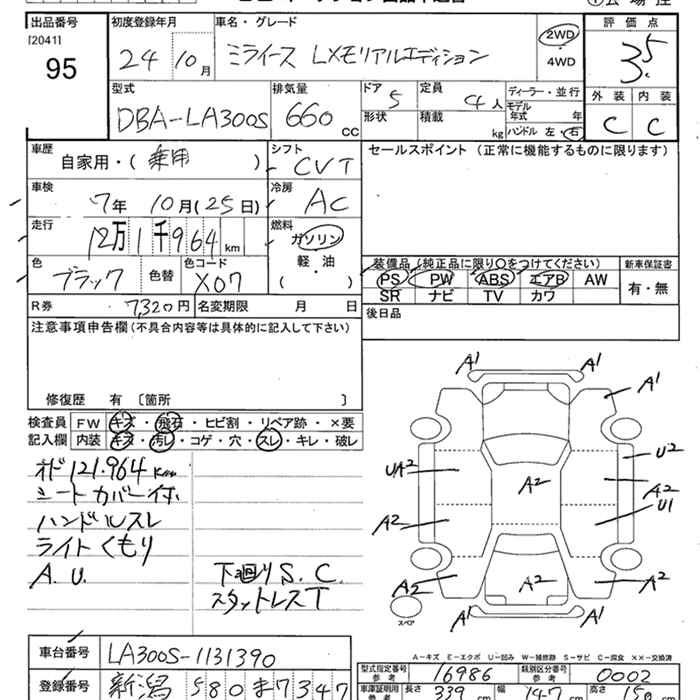 出品番号 初度登録年月 車名・グレード 評価点
[2041]
95 24 10月 ミライース LXモリアルエディション 2WD・4WD 3.5
型式 排気量 ドア 定員 ディーラー・並行 外装 内装
DBA-LA300S 660 CC 5 4人 モデル年式 年 C C
形状 積載 kg ハンドル 左・右
車歴 自家用・(乗用) シフト CVT セールスポイント(正常に機能するものに限ります)
車検 7年 10月(25日) 冷房 AC
走行 12万1千964km 燃料 ガソリン 軽・油 ( )
色 ブラック 色替 色コード X07 装備品(純正品に限り○をつけてください) 新車保証書
PS PW ABS エアB AW 有・無
SR ナビ TV カワ
R券 7,320円 名変期限 月 日 後日品
注意事項申告欄(不具合内容等は具体的に記入して下さい)
修復歴 有 [箇所 ]
検査員 FW キズ・飛石・ヒビ割・リペア跡・×要
記入欄 内装 キズ・汚レ・コゲ・穴・スレ・キレ・破レ
オド 121.964Km
シートカバー付
ハンドルスレ
ライトくもり
A.U. 下廻りS.C.
スタットレスT
A1 A1
A1
U2
UA2 A2 A2
U1
A2
A2 A2 A2
A1 A1
スペア
A-キズ E-エクボ U-凹み W-補修跡 S-サビ C-腐食 ××-交換済
車台番号 LA300S-1131390
型式指定番号 参考 16986 類別区分番号 参考 0002
登録番号 新潟 580 ま 7347
車庫証明用 参考 長さ 339 cm 幅 147 cm 高さ 150 cm